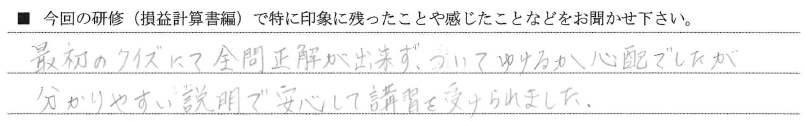 ■ 今回の研修（損益計算書編）で特に印象に残ったことや感じたことなどをお聞かせ下さい。
最初のクイズにて全問正解が出来ず、ついてゆけるか心配でしたが
分かりやすい説明で安心して講習を受けられました。